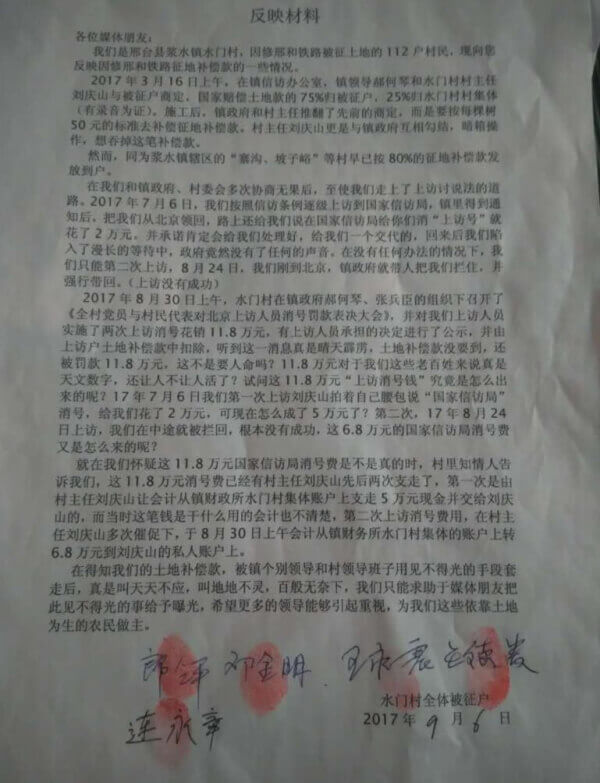 反映材料
各位媒体朋友：
我们是邢台县浆水镇水门村，因修邢和铁路被征土地的112户村民，现向您
反映因修邢和铁路征地补偿款的一些情况。
2017年3月16日上午，在镇信访办公室，镇领导郝何琴和水门村村主任
刘庆山与被征户商定，国家赔偿土地款的75%归被征户，25%归水门村村集体
（有录音为证）。施工后，镇政府和村主任推翻了先前的商定，而是要按每棵树
50元的标准去补偿征地补偿款，村主任刘庆山更是与镇政府互相勾结，暗箱
操作，想吞掉这笔补偿款。
然而，同为浆水镇辖区的“寨沟、坡子峪”等村早已按80%的征地补偿款发
放到户。
在我们和镇政府、村委会多次协商无果后，至使我们走上了上访讨说法的道
路。2017年7月6日，我们按照信访条例逐级上访到国家信访局，镇里得到通
知后，把我们从北京领回，路上还给我们说在国家信访局给你们消“上访号”就
花了2万元。并承诺肯定会给我们处理好，给我们一个交代的，回来后我们陷
入了漫长的等待中，政府竟然没有了任何的声音。在没有任何办法的情况下，我
们只能第二次上访，8月24日，我们刚到北京，镇政府就带人把我们拦住，并
强行带回。（上访没有成功）
2017年8月30日上午，水门村在镇政府郝何琴、张兵臣的组织下召开了
《全村党员与村民代表对北京上访人员消号罚款表决大会》，并对我们上访人员
实施了两次上访消号花销11.8万元，有上访人员承担的决定进行了公示，并由
上访户土地补偿款中扣除，听到这一消息真是晴天霹雳，土地补偿款没要到，还
被罚款11.8万元，这不是要人命吗？11.8万元对于我们这些老百姓来说真是
天文数字，还让人不让人活了？试问这11.8万元“上访消号钱”究竟是怎么出
来的呢？17年7月6日我们第一次上访刘庆山拍着自己腰包说“国家信访局”
消号，给我们花了2万元，可现在怎么成了5万元了？第二次，17年8月24
日上访，我们在中途就被拦回，根本没有成功，这6.8万元的国家信访局消号费
又是怎么来的呢？
就在我们怀疑这11.8万元国家信访局消号费是不是真的时，村里知情人告
诉我们，这11.8万元消号费已经有村主任刘庆山先后两次支走了，第一次是由
村主任刘庆山让会计从镇财政所水门村集体账户上支走5万元现金并交给刘庆
山的，而当时这笔钱是干什么用的会计也不清楚，第二次上访消号费用，在村主
任刘庆山多次催促下，于8月30日上午会计从镇财务所水门村集体的账户上转
6.8万元到刘庆山的私人账户上。
在得知我们的土地补偿款，被镇个别领导和村领导班子用见不得光的手段套
走后，真是叫天天不应，叫地地不灵，百般无奈下，我们只能求助于媒体朋友把
此见不得光的事给予曝光，希望更多的领导能够引起重视，为我们这些依靠土地
为生的农民做主。
邓金明
连永章
水门村全体被征户
2017年9月6日